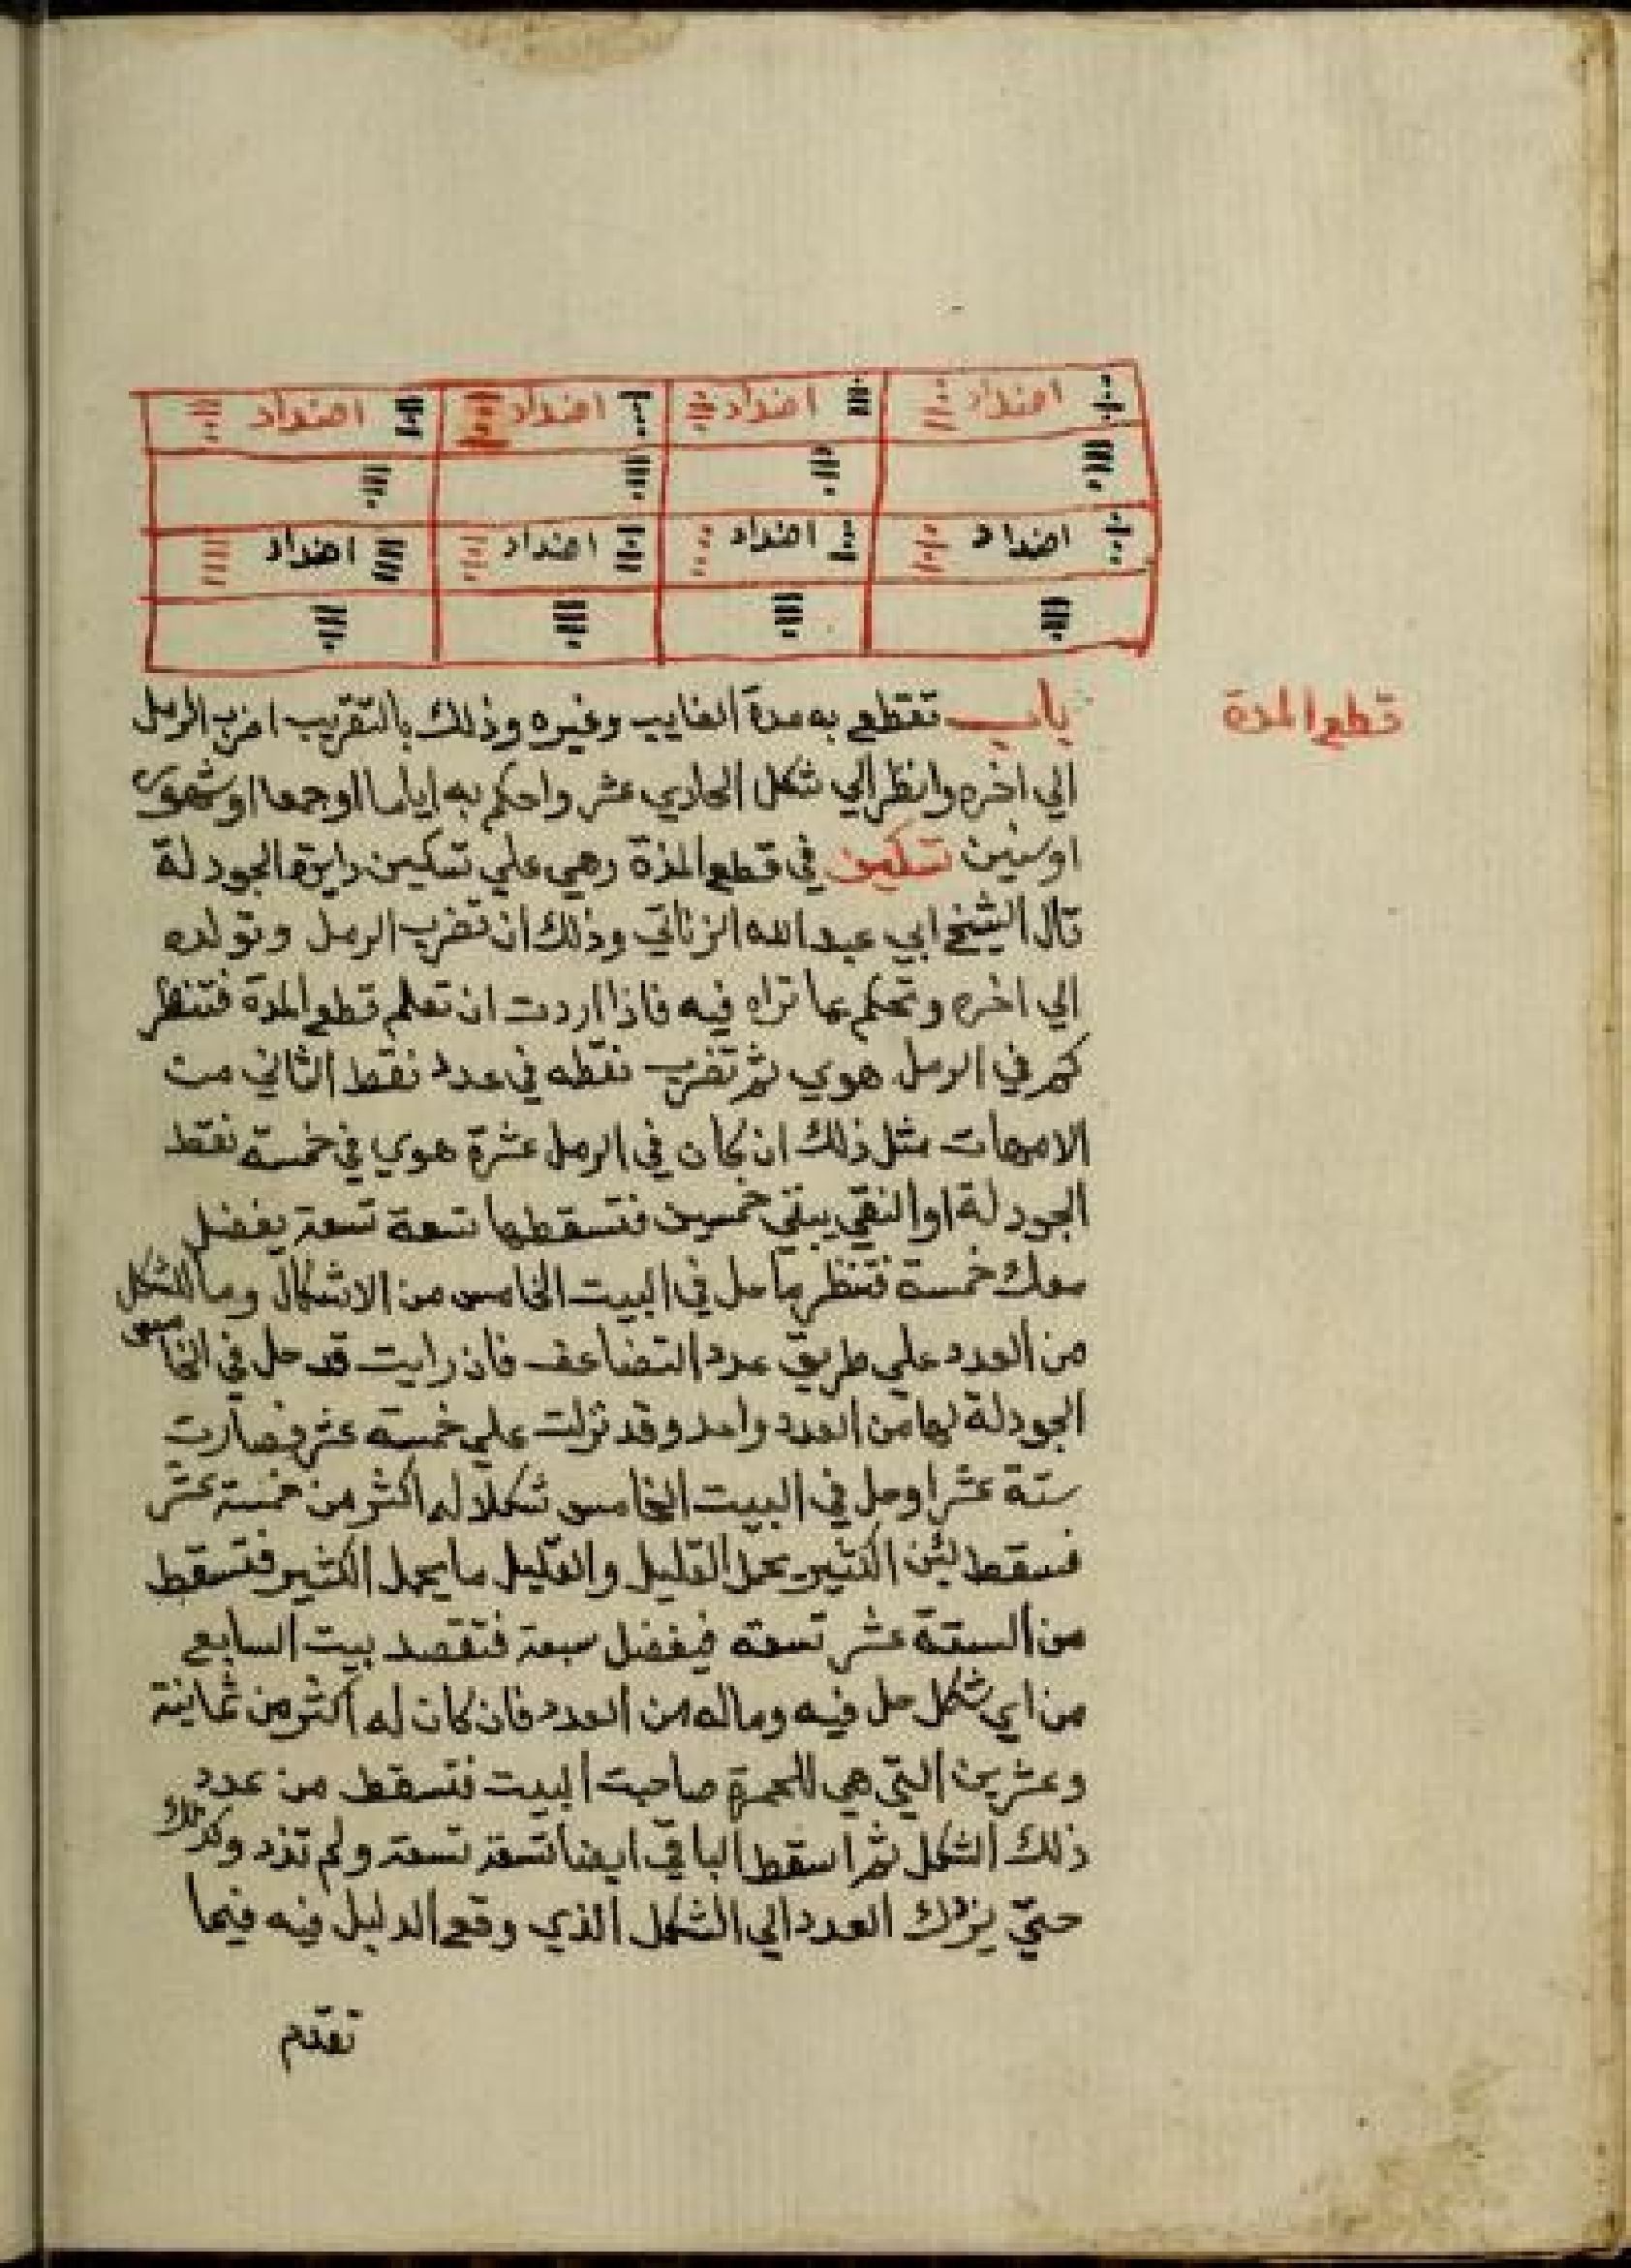 اضداد اضداد اضداد اضداد
اضداد اضداد اضداد اضداد
قطع المدة
باب تقطع به مدة الغايب وغيره وذلك بالتقريب اضرب الرمل
الي اخره وانظر الي شكل الحادي عشر واحكم به اياما او جمعا او شهور
او سنين تسكين في قطع المدة وهي علي تسكين دايرة الجودلة
قال الشيخ ابي عبد الله الزناتي وذلك ان تضرب الرمل وتولده
الي اخره وتحكم بما تراه فيه فاذا اردت ان تعلم قطع المدة فتنظر
كم في الرمل هوي ثم تضرب نقطه في عدد نقط الثاني من
الامهات مثل ذلك ان كان في الرمل عشرة هوي في خمسة نقط
الجودلة او النقي يبقي خمسين فتسقطها تسعة تسعة يفضل
معك خمسة فتنظر ما حل في البيت الخامس من الاشكال وما للشكل
من العدد علي طريق عدد التضاعف فان رايت قد حل في الخامس
الجودلة لها من العدد واحد وقد نزلت علي خمسة عشر فصارت
ستة عشر او حل في البيت الخامس شكلا له اكثر من خمسة عشر
فسقط لئن الكثير يحمل القليل والقليل ما يحمل الكثير فتسقط
من الستة عشر تسعة فيفضل سبعة فتقصد بيت السابع
من اي شكل حل فيه وماله من العدد فان كان له اكثر من ثمانية
وعشرين التي هي للحمرة صاحبت البيت فتسقط من عدد
ذلك الشكل ثم اسقط الباقي ايضا تسعة تسعة ولم تزد وكذلك
حتي ينزلك العدد الي الشكل الذي وقع الدليل فيه فيما
تقدم